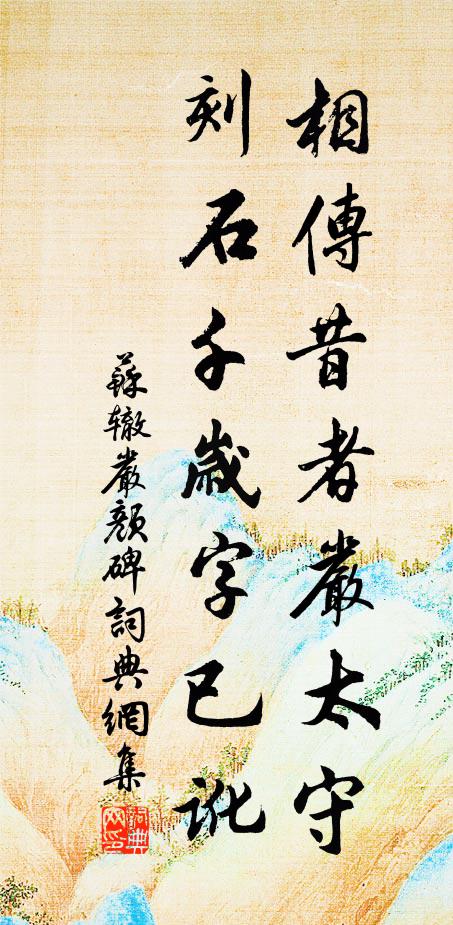 相傳昔者嚴太守
刻石千歲字已訛
蘇辙嚴顏碑詞典網集
詞典
网印